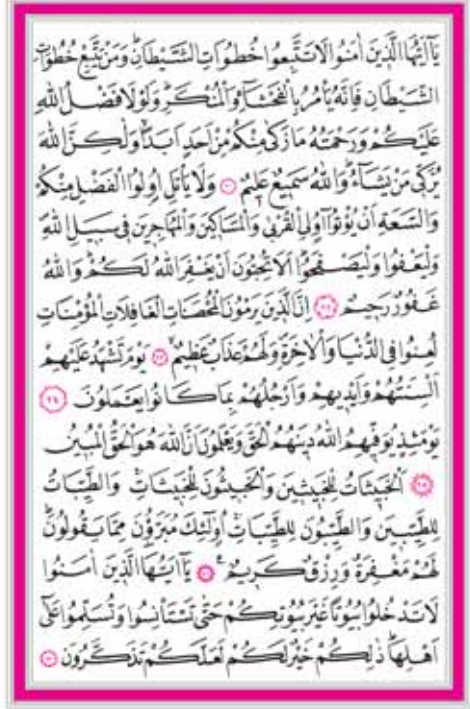 يَٓا اَيُّهَا الَّذ۪ينَ اٰمَنُوا لَا تَتَّبِعُوا خُطُوَاتِ الشَّيْطَانِۜ وَمَنْ يَتَّبِعْ خُطُوَاتِ
الشَّيْطَانِ فَاِنَّهُ يَأْمُرُ بِالْفَحْشَٓاءِ وَالْمُنْكَرِۜ وَلَوْلَا فَضْلُ اللّٰهِ
عَلَيْكُمْ وَرَحْمَتُهُ مَا زَكٰى مِنْكُمْ مِنْ اَحَدٍ اَبَدًاۙ وَلٰكِنَّ اللّٰهَ
يُزَكّ۪ي مَنْ يَشَٓاءُۜ وَاللّٰهُ سَم۪يعٌ عَل۪يمٌ ﴿٢١﴾ وَلَا يَأْتَلِ اُو۬لُوا الْفَضْلِ مِنْكُمْ
وَالسَّعَةِ اَنْ يُؤْتُٓوا اُو۬لِي الْقُرْبٰى وَالْمَسَاك۪ينَ وَالْمُهَاجِر۪ينَ ف۪ي سَب۪يلِ اللّٰهِۖ
وَلْيَعْفُوا وَلْيَصْفَحُواۜ اَلَا تُحِبُّونَ اَنْ يَغْفِرَ اللّٰهُ لَكُمْۜ وَاللّٰهُ
غَفُورٌ رَح۪يمٌ ﴿٢٢﴾ اِنَّ الَّذ۪ينَ يَرْمُونَ الْمُحْصَنَاتِ الْغَافِلَاتِ الْمُؤْمِنَاتِ
لُعِنُوا فِي الدُّنْيَا وَالْاٰخِرَةِۖ وَلَهُمْ عَذَابٌ عَظ۪يمٌۙ ﴿٢٣﴾ يَوْمَ تَشْهَدُ عَلَيْهِمْ
اَلْسِنَتُهُمْ وَاَيْد۪يهِمْ وَاَرْجُلُهُمْ بِمَا كَانُوا يَعْمَلُونَ ﴿٢٤﴾
يَوْمَئِذٍ يُوَفّ۪يهِمُ اللّٰهُ د۪ينَهُمُ الْحَقَّ وَيَعْلَمُونَ اَنَّ اللّٰهَ هُوَ الْحَقُّ الْمُب۪ينُ
﴿٢٥﴾ اَلْخَب۪يثَاتُ لِلْخَب۪يث۪ينَ وَالْخَب۪يثُونَ لِلْخَب۪يثَاتِۚ وَالطَّيِّبَاتُ
لِلطَّيِّب۪ينَ وَالطَّيِّبُونَ لِلطَّيِّبَاتِۚ اُو۬لٰٓئِكَ مُبَرَّؤُ۫نَ مِمَّا يَقُولُونَۜ
لَهُمْ مَغْفِرَةٌ وَرِزْقٌ كَر۪يمٌ۟ ﴿٢٦﴾ يَٓا اَيُّهَا الَّذ۪ينَ اٰمَنُوا
لَا تَدْخُلُوا بُيُوتًا غَيْرَ بُيُوتِكُمْ حَتّٰى تَسْتَأْنِسُوا وَتُسَلِّمُوا عَلٰٓى
اَهْلِهَاۜ ذٰلِكُمْ خَيْرٌ لَكُمْ لَعَلَّكُمْ تَذَكَّرُونَ ﴿٢٧﴾